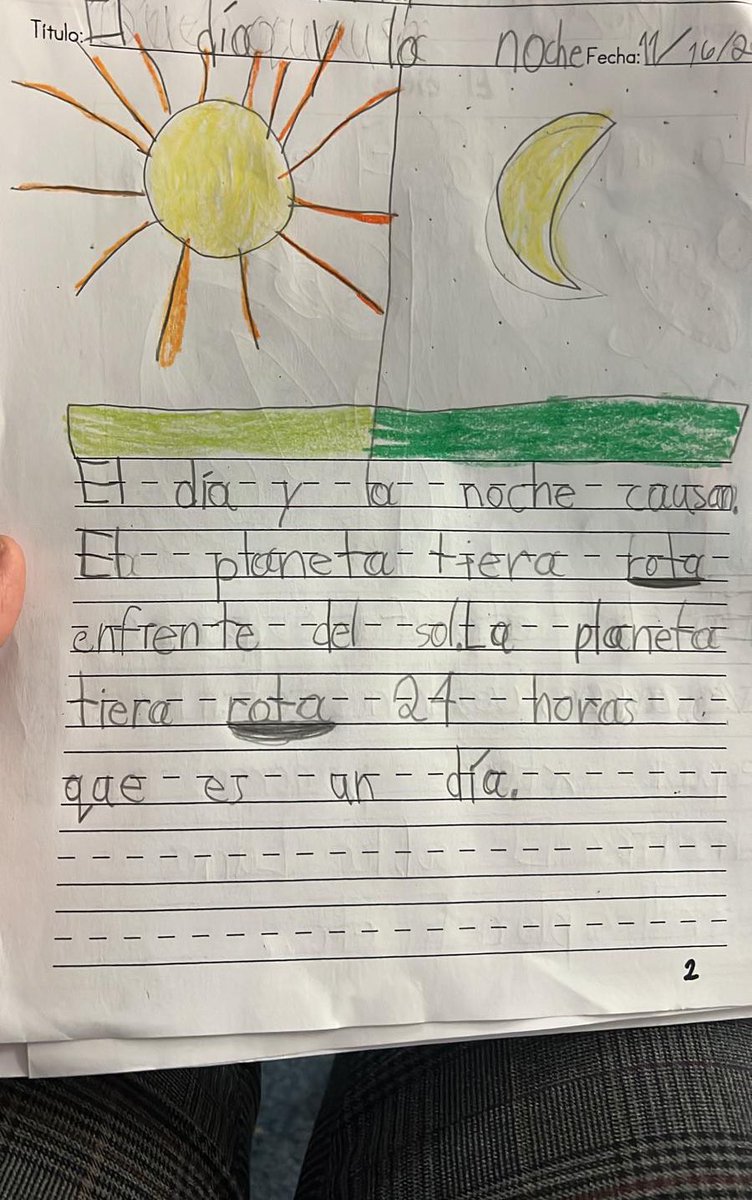 Título: El día y la noche Fecha: 11/16/2
El día y la noche causan.
El planeta tiera rota
enfrente del sol.La planeta
tiera rota 24 horas
que es un día.
2